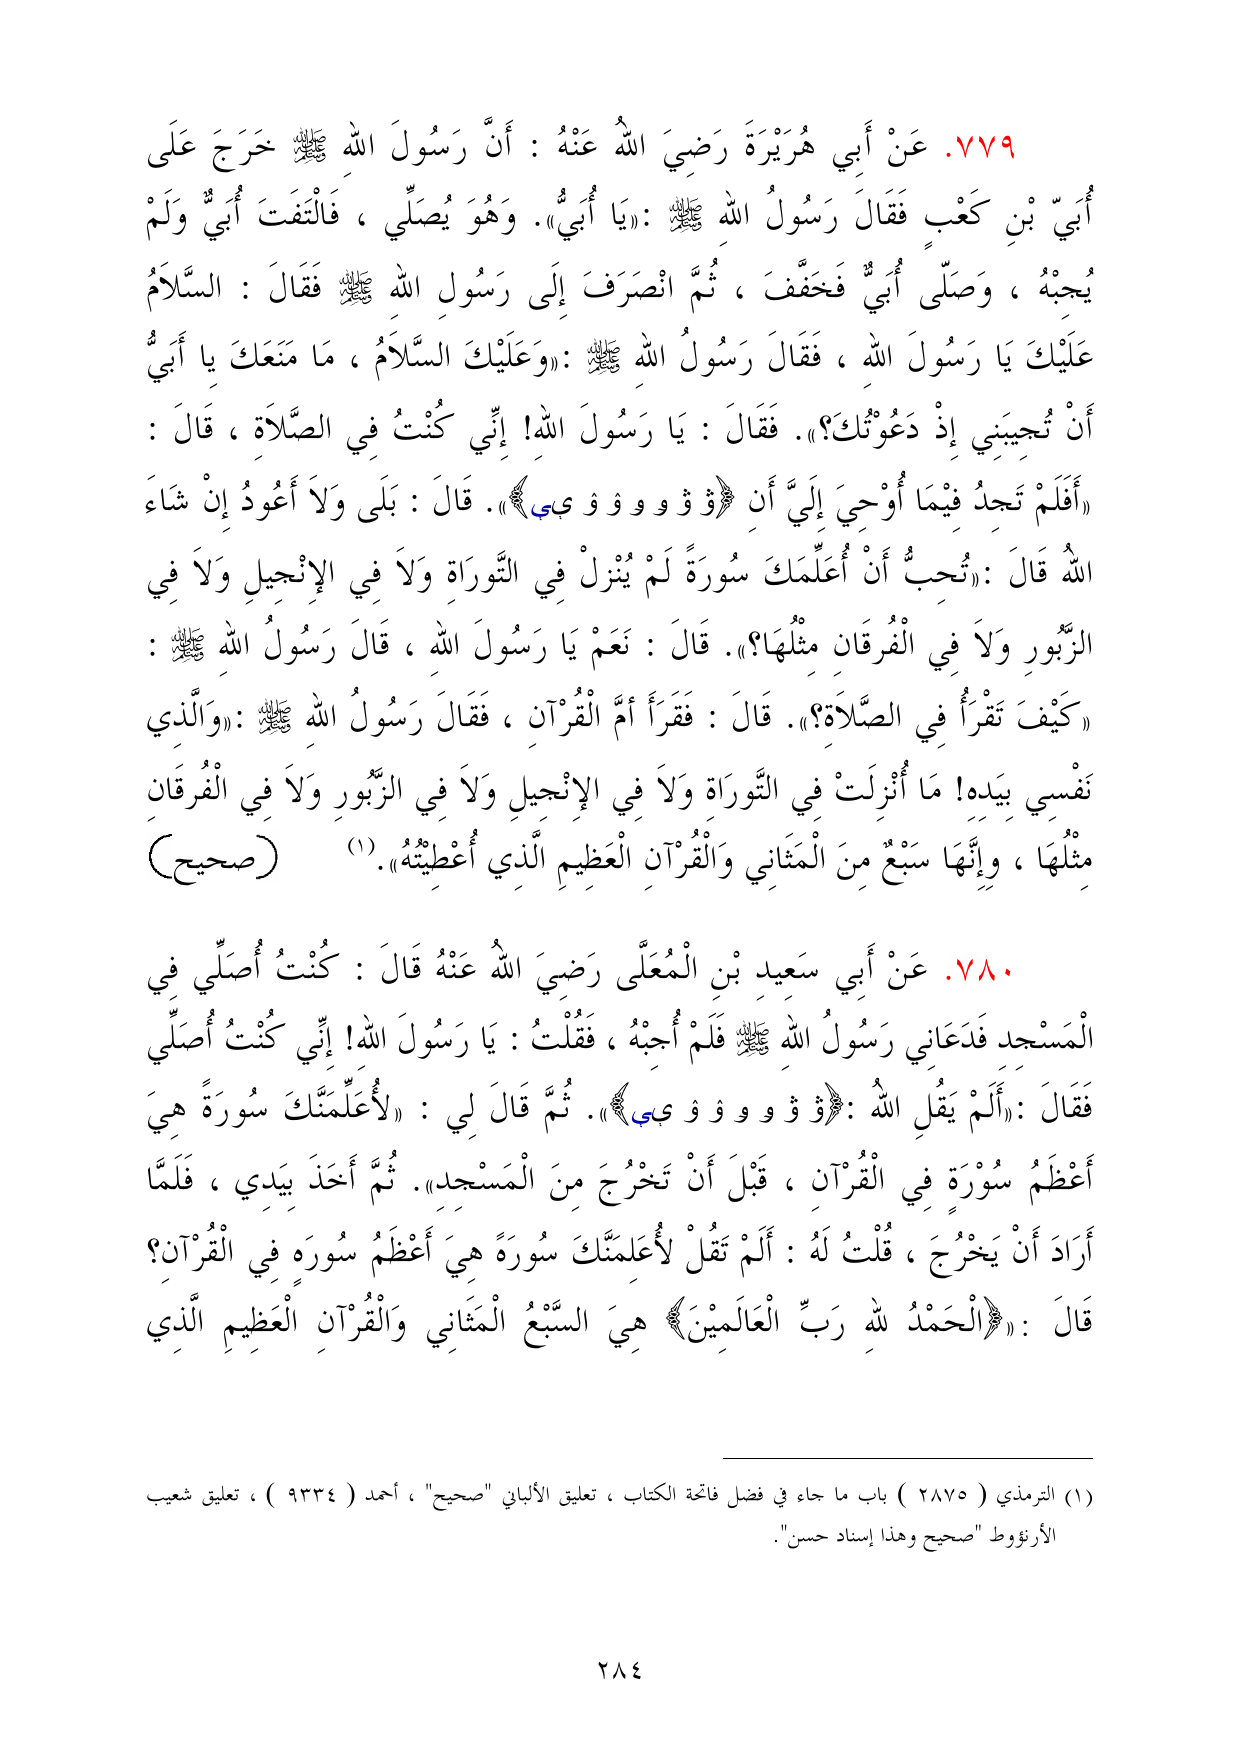 ٧٧٩. عَنْ أَبِي هُرَيْرَةَ رَضِيَ اللهُ عَنْهُ : أَنَّ رَسُولَ اللهِ ﷺ خَرَجَ عَلَى
أُبَيّ بْنِ كَعْبٍ فَقَالَ رَسُولُ اللهِ ﷺ :«يَا أُبَيُّ». وَهُوَ يُصَلِّي ، فَالْتَفَتَ أُبَيٌّ وَلَمْ
يُجِبْهُ ، وَصَلّى أُبَيٌّ فَخَفَّفَ ، ثُمَّ انْصَرَفَ إِلَى رَسُولِ اللهِ ﷺ فَقَالَ : السَّلاَمُ
عَلَيْكَ يَا رَسُولَ اللهِ ، فَقَالَ رَسُولُ اللهِ ﷺ :«وَعَلَيْكَ السَّلاَمُ ، مَا مَنَعَكَ يا أَبَيُّ
أَنْ تُجِيبَنِي إِذْ دَعُوْتُكَ؟». فَقَالَ : يَا رَسُولَ اللهِ! إِنِّي كُنْتُ فِي الصَّلاَةِ ، قَالَ :
«أَفَلَمْ تَجِدُ فِيْمَا أُوْحِيَ إِلَيَّ أَنِ ﴿ۇ ۆ ۈ و و ۈ ۇ ىى﴾». قَالَ : بَلَى وَلاَ أَعُودُ إِنْ شَاءَ
اللهُ قَالَ :«تُحِبُّ أَنْ أُعَلِّمَكَ سُورَةً لَمْ يُنْزِلْ فِي التَّورَاةِ وَلاَ فِي الإِنْجِيلِ وَلاَ فِي
الزَّبُورِ وَلاَ فِي الْفُرقَانِ مِثْلُهَا؟». قَالَ : نَعَمْ يَا رَسُولَ اللهِ ، قَالَ رَسُولُ اللهِ ﷺ :
«كَيْفَ تَقْرَأُ فِي الصَّلاَةِ؟». قَالَ : فَقَرَأَ أمَّ الْقُرْآنِ ، فَقَالَ رَسُولُ اللهِ ﷺ :«وَالَّذِي
نَفْسِي بِيَدِهِ! مَا أُنْزِلَتْ فِي التَّورَاةِ وَلاَ فِي الإِنْجِيلِ وَلاَ فِي الزَّبُورِ وَلاَ فِي الْفُرقَانِ
مِثْلُهَا ، وِإِنَّهَا سَبْعٌ مِنَ الْمَثَانِي وَالْقُرْآنِ الْعَظِيمِ الَّذِي أُعْطِيْتُهُ».(١) (صحيح)
٧٨٠. عَنْ أَبِي سَعِيدِ بْنِ الْمُعَلَّى رَضِيَ اللهُ عَنْهُ قَالَ : كُنْتُ أُصَلِّي فِي
الْمَسْجِدِ فَدَعَانِي رَسُولُ اللهِ ﷺ فَلَمْ أُجِبْهُ ، فَقُلْتُ : يَا رَسُولَ اللهِ! إِنِّي كُنْتُ أُصَلِّي
فَقَالَ :«أَلَمْ يَقُلِ اللهُ :﴿ۇ ۆ ۈ و و ۈ ۇ ىى﴾». ثُمَّ قَالَ لِي : «لأُعَلِّمَنَّكَ سُورَةً هِيَ
أَعْظَمُ سُوْرَةٍ فِي الْقُرْآنِ ، قَبْلَ أَنْ تَخْرُجَ مِنَ الْمَسْجِدِ». ثُمَّ أَخَذَ بِيَدِي ، فَلَمَّا
أَرَادَ أَنْ يَخْرُجَ ، قُلْتُ لَهُ : أَلَمْ تَقُلْ لأُعَلِمَنَّكَ سُورَةً هِيَ أَعْظَمُ سُورَهٍ فِي الْقُرْآنِ؟
قَالَ :«﴿الْحَمْدُ للهِ رَبِّ الْعَالَمِيْنَ﴾ هِيَ السَّبْعُ الْمَثَانِي وَالْقُرْآنِ الْعَظِيمِ الَّذِي
(١) الترمذي ( ٢٨٧٥ ) باب ما جاء في فضل فاتحة الكتاب ، تعليق الألباني "صحيح" ، أحمد ( ٩٣٣٤ ) ، تعليق شعيب
الأرنؤوط "صحيح وهذا إسناد حسن".
٢٨٤